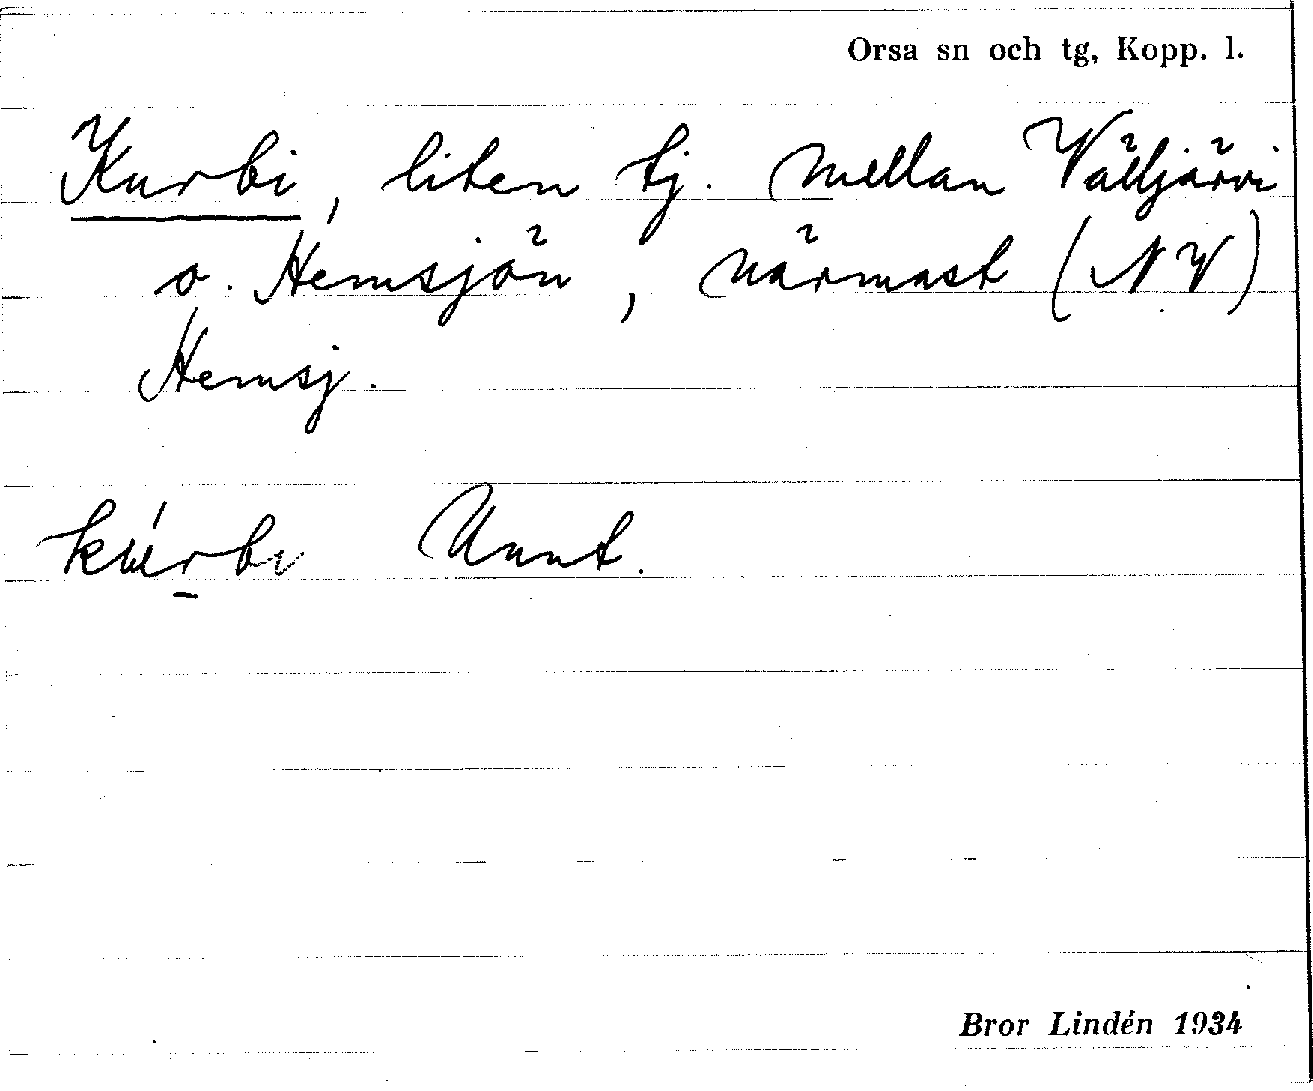 Orsa sn och tg, Kopp. l.
Kurbi, liten tj. mellan Välljärvi
o. Hemsjön, närmast (N.V)
Hemsj.
kúrbi Unnt.
Bror Lindén 1934